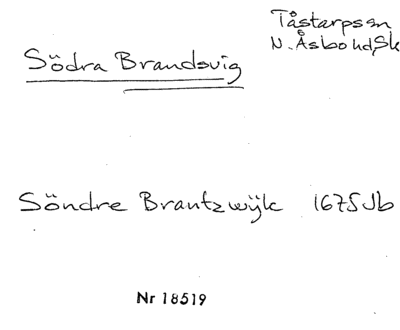 Tåstarpssn
N. Åsbo hd, Sk
Södra Brandsvig
Söndre Brantzwÿk 1675 Jb
Nr 18519